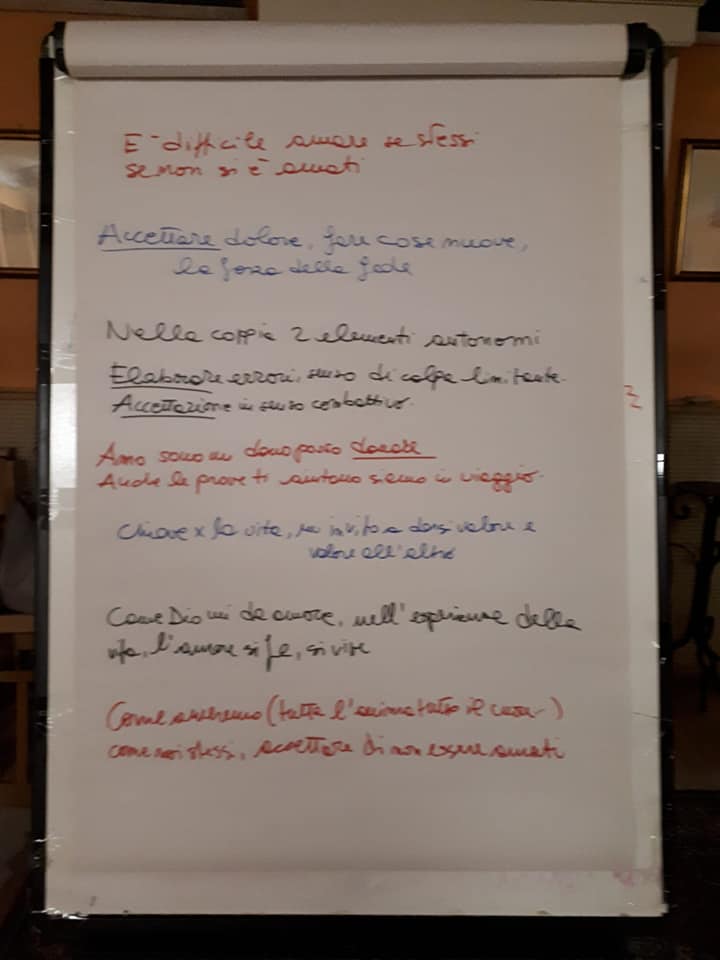 E' difficile amare se stessi
se non si è amati
Accettare dolore, fare cose nuove,
la forza della fede
Nella coppia 2 elementi autonomi
Elaborare errori, senso di colpa limitante.
Accettazione in senso combattivo.
Amo sono un dono posso donare
Anche le prove ti aiutano siamo in viaggio.
Chiave x la vita, un invito a darsi valore e
valore all'altro
Come Dio mi da amore, nell'esperienza della
vita, l'amore si fa, si vive
Come (tutta l'anima tutto il cuore)
come noi stessi, accettare di non essere amati